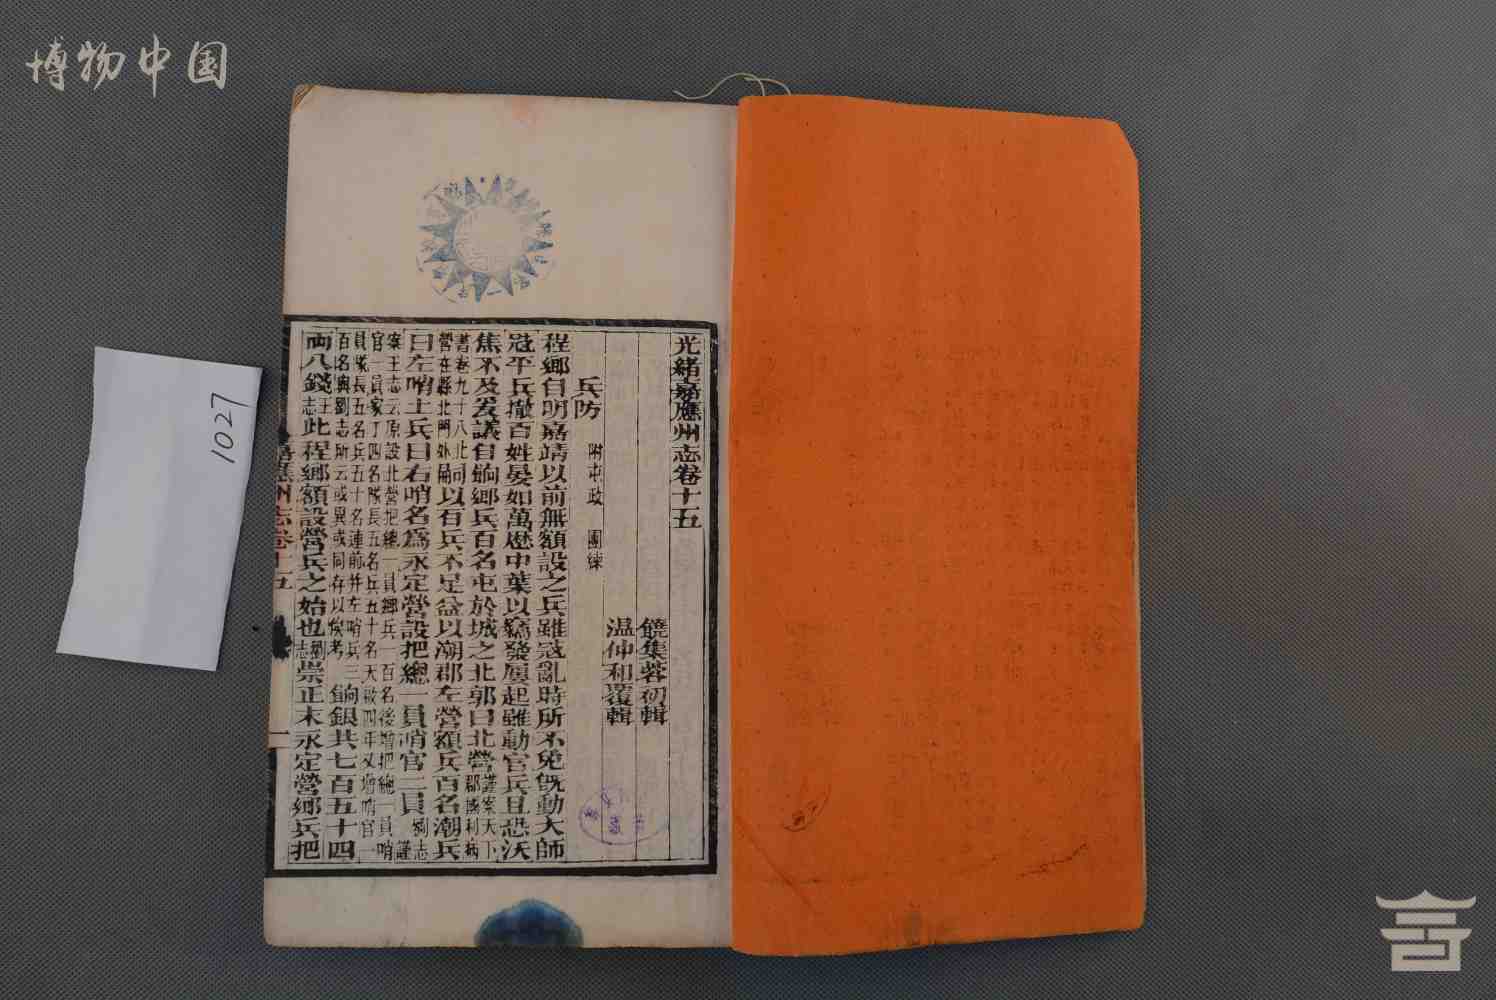 博物中国
1027
光緒嘉應州志卷十五
饒集蓉初輯
温仲和覆輯
兵防 附屯政 團練
程鄉自明嘉靖以前無額設之兵雖寇亂時所不免旣動大師
寇平兵撤百姓晏如萬厯中葉以竊發屢起雖動官兵且恐沃
焦不及爰議自餉鄉兵百名屯於城之北郭曰北營 謹案天下郡國利病
書卷九十八北同營在縣北門外 以有兵不足益以潮郡左營額兵百名潮兵
曰左哨土兵曰右哨名爲永定營設把總一員哨官二員 劉志 謹
案王志云原設北營把總一員鄉兵一百名後增把總一員哨
官一員家丁四名隊長五名兵五十名天啟四年又增哨官一
員隊長五名兵五十名連前并左哨兵三
百名與劉志所云或異或同存以俟考 餉銀共七百五十四
兩八錢 王志 此程鄉額設營兵之始也 劉志 崇正末永定營鄉兵把
嘉應州志卷十五 一